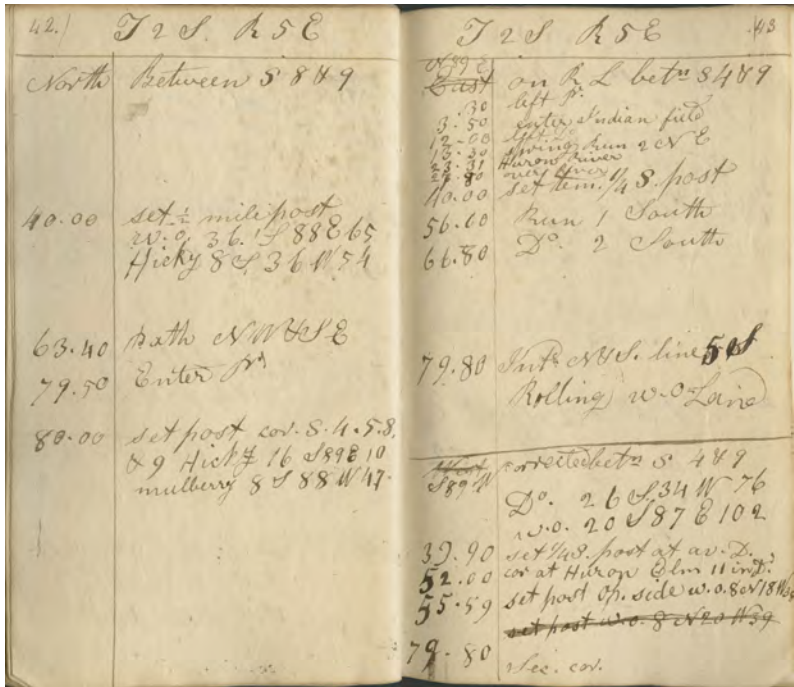 42.) T 2 S. R 5 E
North Between S 8 & 9
40.00 set ½ mile post
w.o. 36. S 88 E 65
Hicky 8 S. 36 W 54
63.40 Path NW & SE
79.50 Enter Pr.
80.00 set post cor. S. 4. 5. 8.
& 9 Hicky 16 S 89 E 10
mulberry 8 S 88 W 47.
T 2 S R 5 E 43
N 89 E
East on R L betn S 4 & 9
.30 left Pr.
3.50 enter Indian field
12-00 left Do.
13.30 spring Run 2 N E
23.31 Huron River
27.80 over river
40.00 set tem. ¼ S. post
56.60 Run 1 South
66.80 Do. 2 South
79.80 Ints. N & S. line 5 S
Rolling w.o. Land
West corrected betn S 4 & 9
S 89 W
Do. 26 S. 34 W 76
w.o. 20 S 87 E 102
39.90 set ¼ S. post at av. D.
52.00 cor at Huron Elm 11 in D.
55.59 set post op. side w.o. 8 N 18 W 34
set post w.o. 8 N 20 W 39
79.80 Sec. cor.